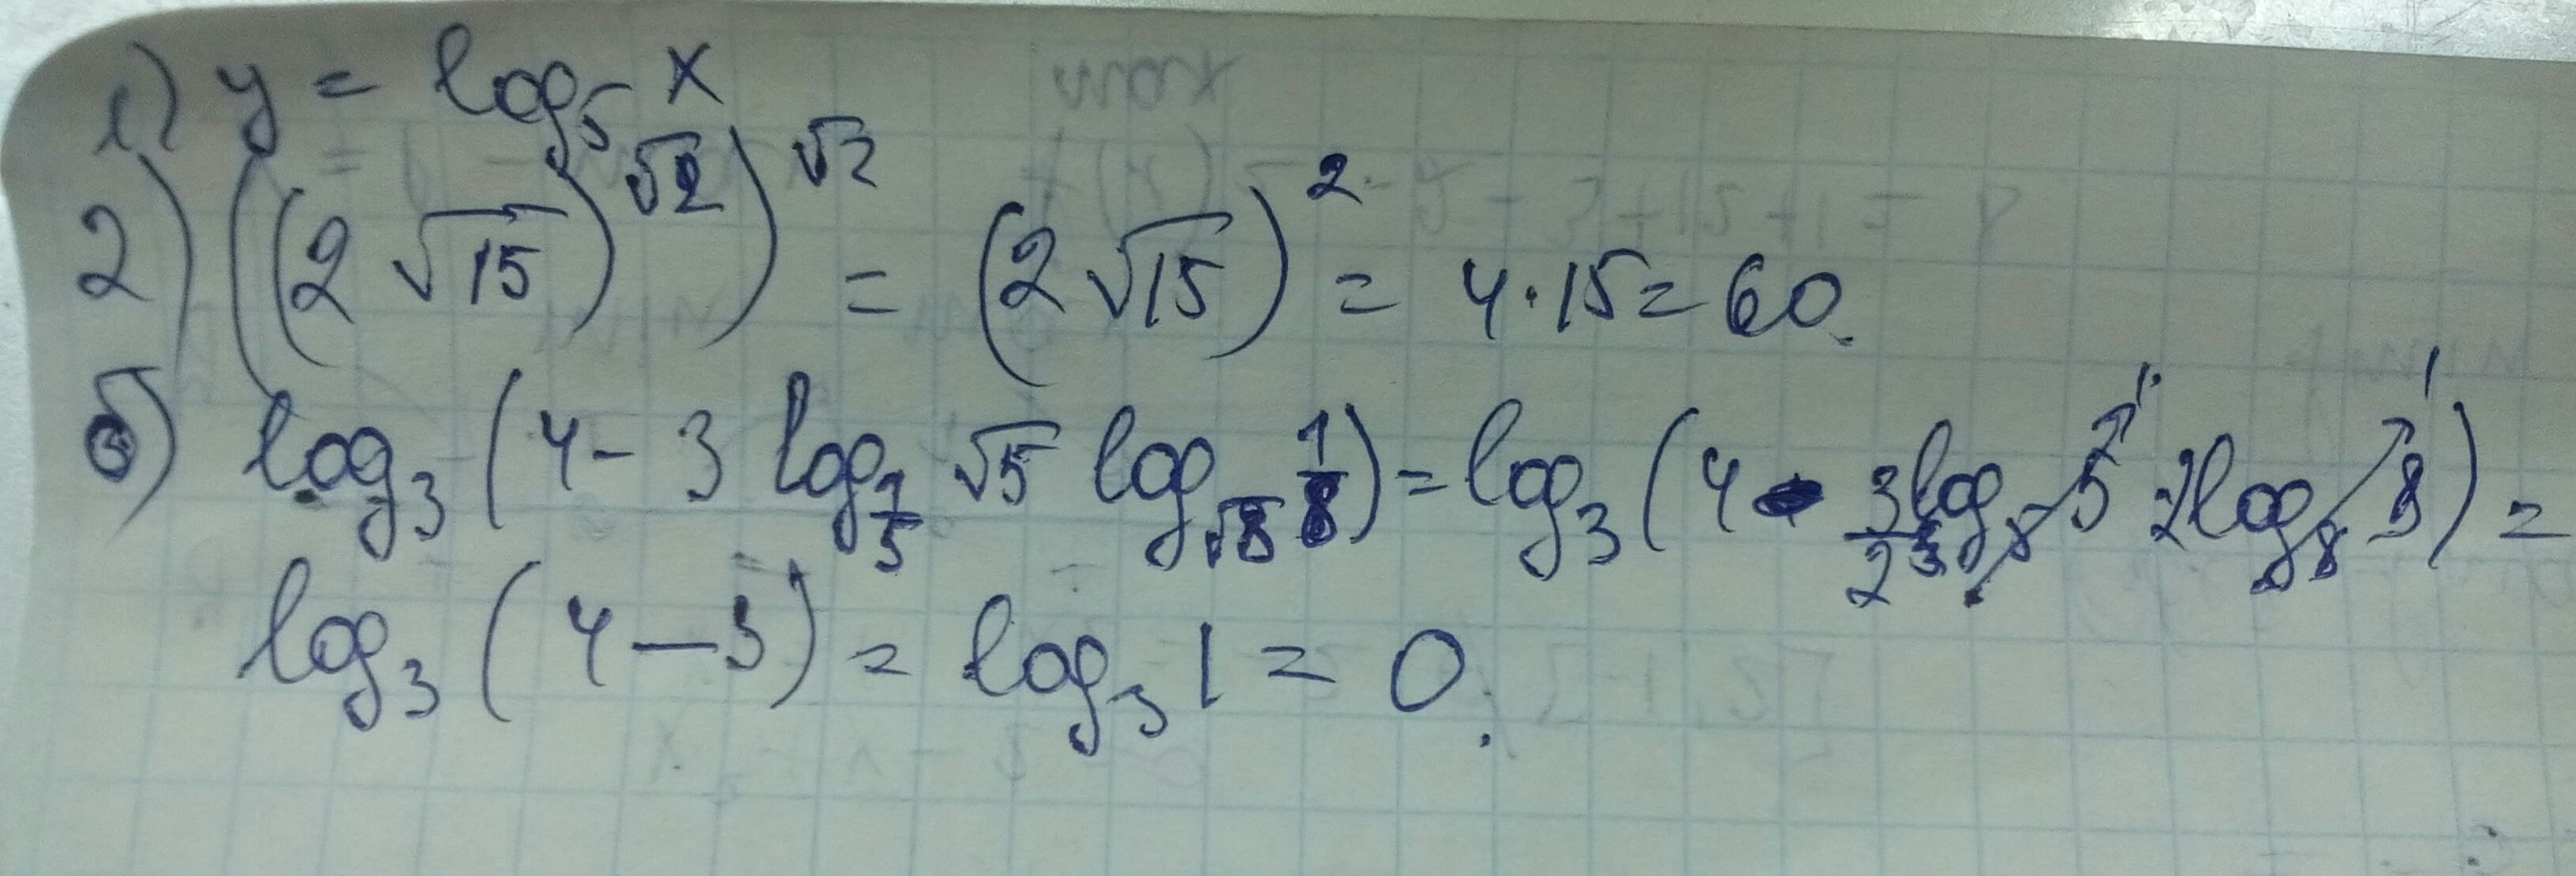 1) y = log₅ x
2) ((2√15)^√2)^√2 = (2√15)² = 4·15 = 60.
б) log₃(4 - 3 log_1/5 √5 log_√8 1/8) = log₃(4 - 3/2 log₅ 5 · 2 log₈ 8) =
log₃(4 - 3) = log₃ 1 = 0.